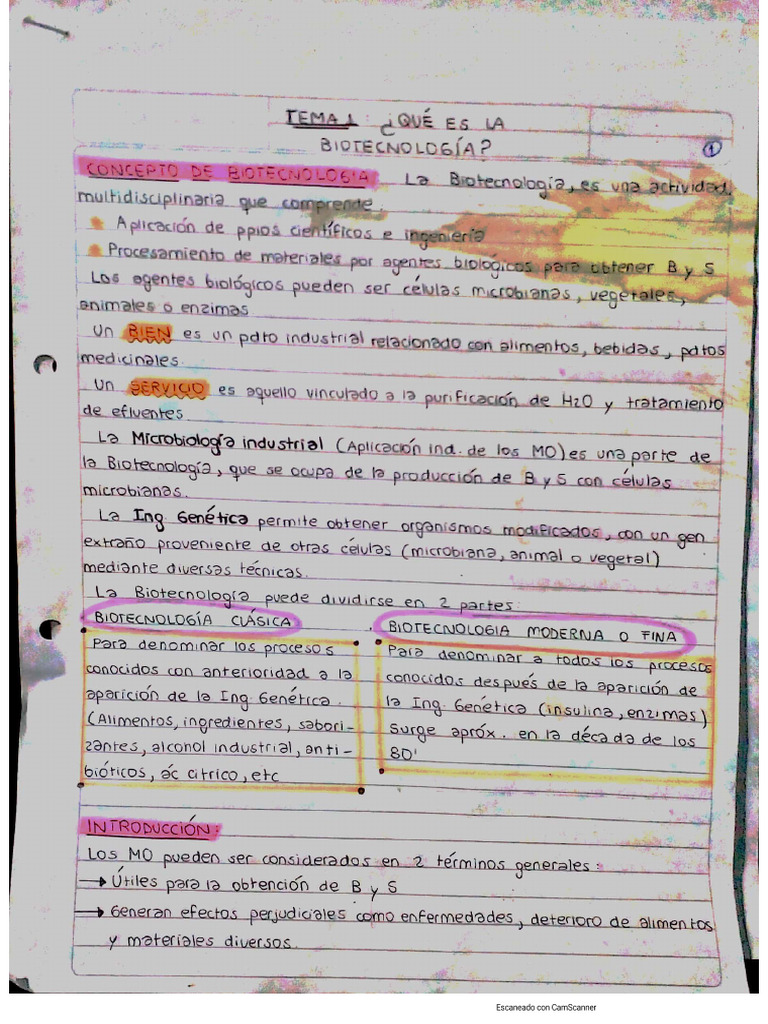 TEMA 1: ¿QUÉ ES LA
BIOTECNOLOGÍA?
1
CONCEPTO DE BIOTECNOLOGIA: La Biotecnología, es una actividad
multidisciplinaria que comprende:
• Aplicación de ppios científicos e ingeniería
• Procesamiento de materiales por agentes biológicos para obtener B y S
Los agentes biológicos pueden ser células microbianas, vegetales,
animales o enzimas
Un BIEN es un pdto industrial relacionado con alimentos, bebidas, pdtos
medicinales.
Un SERVICIO es aquello vinculado a la purificación de H2O y tratamiento
de efluentes
La Microbiología industrial (Aplicación ind. de los MO) es una parte de
la Biotecnología, que se ocupa de la producción de B y S con células
microbianas.
La Ing. Genética permite obtener organismos modificados, con un gen
extraño proveniente de otras células (microbiana, animal o vegetal)
mediante diversas técnicas.
La Biotecnología puede dividirse en 2 partes:
BIOTECNOLOGÍA CLÁSICA
Para denominar los procesos
conocidos con anterioridad a la
aparición de la Ing. Genética.
(Alimentos, ingredientes, sabori-
zantes, alcohol industrial, anti-
bióticos, ác citrico, etc
BIOTECNOLOGIA MODERNA O FINA
Para denominar a todos los procesos
conocidos después de la aparición de
la Ing. Genética (insulina, enzimas)
Surge apróx. en la década de los
80'
INTRODUCCIÓN:
Los MO pueden ser considerados en 2 términos generales:
→ Útiles para la obtención de B y S
→ Generan efectos perjudiciales como enfermedades, deterioro de alimentos
y materiales diversos.
Escaneado con CamScanner